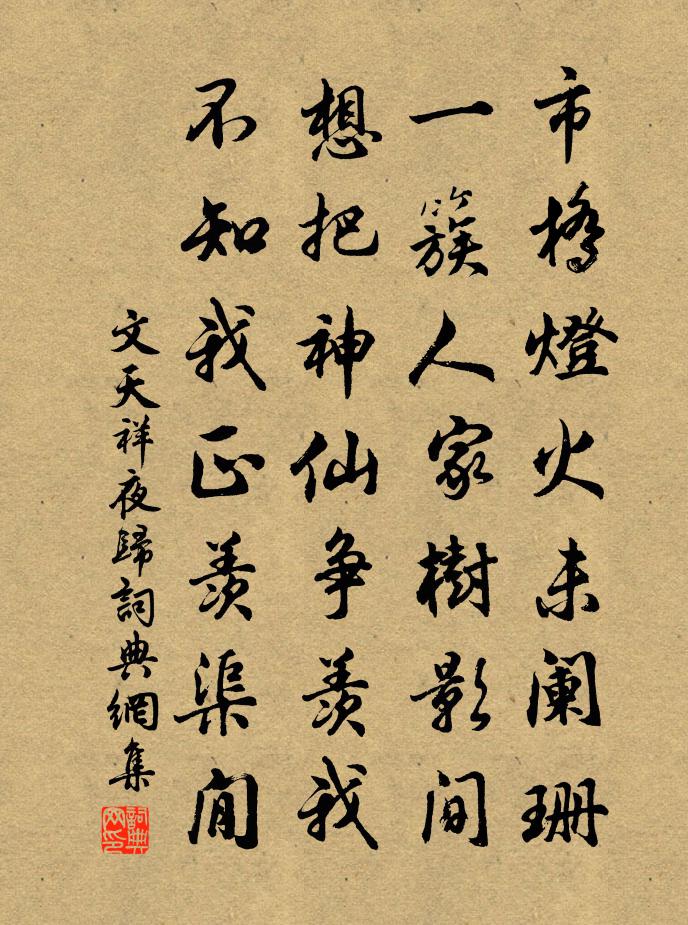 市橋燈火未阑珊
一簇人家樹影间
想把神仙争羨我
不知我正羨渠閒
文天祥夜歸詞典網集
詞典网印